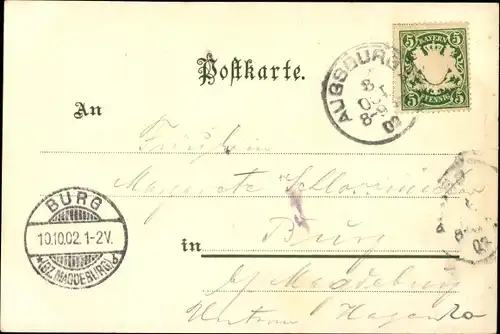 Postkarte.
5 BAYERN 5
5 PFENNIG 5
AUGSBURG
8
OKT
8-9
02
An
Fräulein
Margarete
BURG
10.10.02. 1-2V.
*(BZ. MAGDEBURG)
in Burg
bei Magdeburg
Unterm Hagen